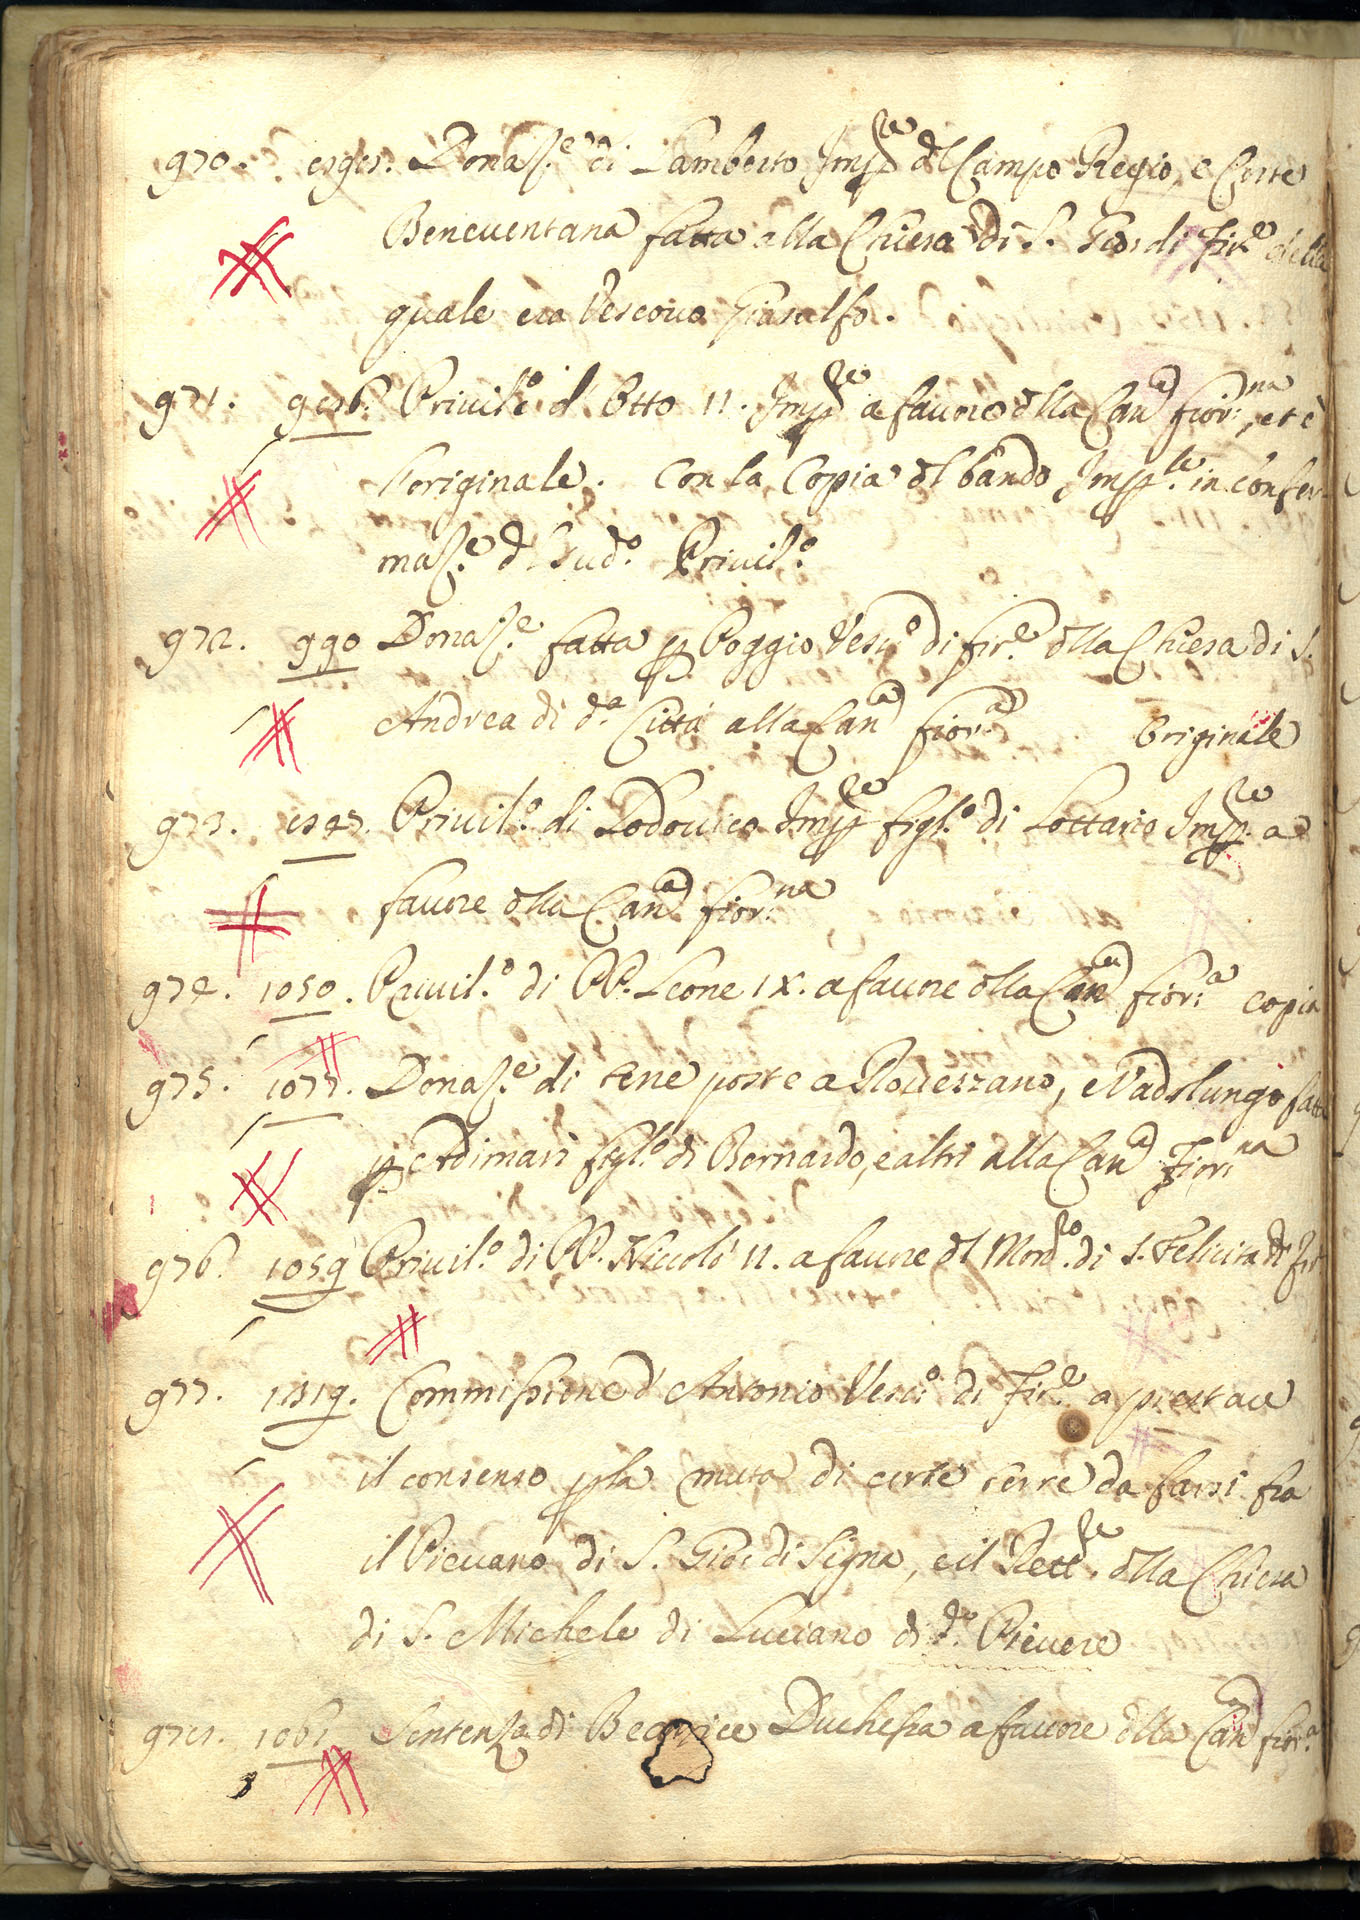 970. 898. Donaz.e di Lamberto Imp.re dl Campo Regio, e Corte
Beneventana fatta alla Chiesa di S. Gio: di Fir.e della
quale era Vescovo Grasulfo.
971. 976. Privil.o d' Otto II. Imp.re a favore dlla Can.a Fior.na, et è
l'originale. Con la Copia dl bando Imp.le in confer
maz.e dl sud.o Privil.o
972. 990 Donaz.e fatta p Poggio Vesc.o di Fir.e dlla Chiesa di S.
Andrea di d.a Città alla Can.a Fior.a Originale
973. 847. Privil.o di Lodovico Imp.re figl.o di Lottario Imp.re a
favore dlla Can.a Fior.na
974. 1050. Privil.o di PP. Leone IX. a favore dlla Can.a Fior.a copia
975. 1077. Donaz.e di terre poste a Rovezzano, e Vadolungo fatta
p Adimari figl.o di Bernardo, e altri alla Can.a Fior.na
976. 1059 Privil.o di PP. Niccolò II. a favore dl Mon.ro di S. Felicita di Fir
977. 1819. Commissione d' Antonio Vesc.o di Fir.e a prestare
il consenso p la muta di certe terre da farsi fra
il Pievano di S. Gio: di Signa, e il Rett.re dlla Chiesa
di S. Michele di Luciano di d.o Pievere
978. 1061 Sentenza di Beatrice Duchessa a favore dlla Can.a Fior.a